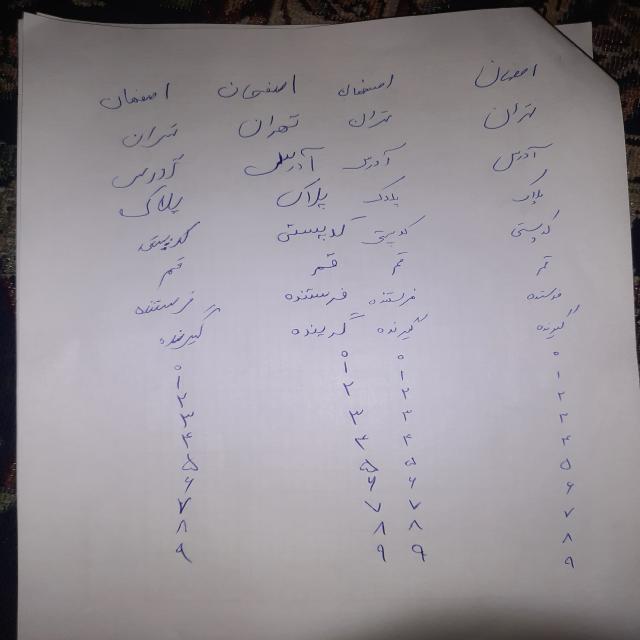 اصفهان اصفهان اصفهان اصفهان
تهران تهران تهران تهران
آدرس آدرس آدرس آدرس
پلاک پلاک پلاک پلاک
کدپستی کدپستی کدپستی کدپستی
قم قم قم قم
فرستنده فرستنده فرستنده فرستنده
گیرنده گیرنده گرینده گیرنده
۰ ۰ ۰ ۰
۱ ۱ ۱ ۱
۲ ۲ ۲ ۲
۳ ۳ ۳ ۳
۴ ۴ ۴ ۴
۵ ۵ ۵ ۵
۶ ۶ ۶ ۶
۷ ۷ ۷ ۷
۸ ۸ ۸ ۸
۹ ۹ ۹ ۹